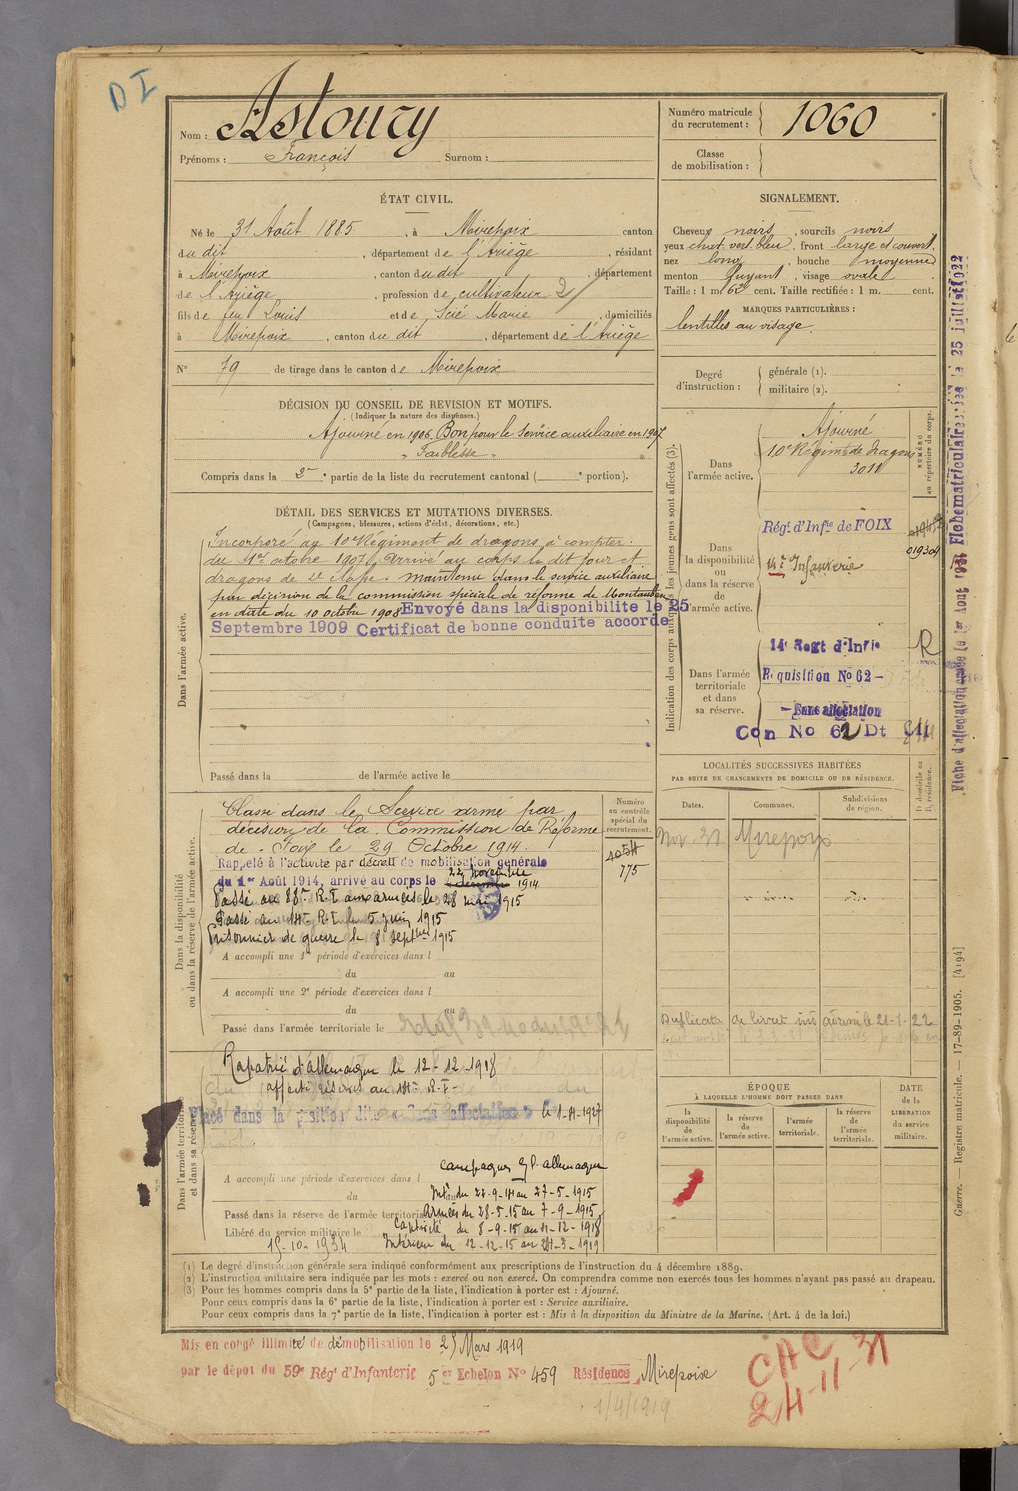 D I
Nom : Astoury
Prénoms : François Surnom :
Numéro matricule du recrutement : 1060
Classe de mobilisation :
ÉTAT CIVIL.
Né le 31 Août 1885, à Mirepoix canton
du dit, département de l'Ariège, résidant
à Mirepoix, canton du dit, département
de l'Ariège, profession de cultivateur 2/
fils de feu Louis et de Scié Marie, domiciliés
à Mirepoix, canton du dit, département de l'Ariège
N° 79 de tirage dans le canton de Mirepoix
DÉCISION DU CONSEIL DE REVISION ET MOTIFS.
(Indiquer la nature des dispenses.)
Ajourné en 1906. Bon pour le Service auxiliaire en 1907
" Faiblesse "
Compris dans la 5e partie de la liste du recrutement cantonal ( portion).
DÉTAIL DES SERVICES ET MUTATIONS DIVERSES.
(Campagnes, blessures, actions d'éclat, décorations, etc.)
Dans l'armée active.
Incorporé au 10e Régiment de dragons à compter
du 1er octobre 1907, Arrivé au corps le dit jour et
dragons de 2e classe. maintenu dans le service auxiliaire
par décision de la commission spéciale de réforme de Montauban
en date du 10 octobre 1908 Envoyé dans la disponibilite le 25
Septembre 1909 Certificat de bonne conduite accordé
Passé dans la de l'armée active le
SIGNALEMENT.
Cheveux noirs, sourcils noirs
yeux chat. vert. bleu, front large et couvert,
nez long, bouche moyenne
menton fuyant, visage ovale
Taille : 1 m. 62 cent. Taille rectifiée : 1 m. cent.
MARQUES PARTICULIÈRES :
lentilles au visage.
Degré d'instruction : générale (1).
militaire (2).
Indication des corps auxquels les jeunes gens sont affectés (3).
NUMÉRO au répertoire du corps.
Dans l'armée active.
Ajourné
10e Régiment de dragons
3011
Dans la disponibilité ou dans la réserve de l'armée active.
Régt d'Infie de FOIX
019309
14e Infanterie
Dans l'armée territoriale et dans sa réserve.
14e Regt d'Infie
R
Requisition No 62 -
- Sans affectation
Con No 62 Dt
Fiche d'affectation créée le 1er Aout 19 Fiche matriculaire créée le 25 juillet 1922
LOCALITÉS SUCCESSIVES HABITÉES
PAR SUITE DE CHANGEMENTS DE DOMICILE OU DE RÉSIDENCE.
Dates. Communes. Subdivisions de région. D domicile ou R résidence.
Nov 31 Mirepoix
Duplicata de livret mis adressé le 21-1-22
Dans la disponibilité ou dans la réserve de l'armée active.
Numéro au contrôle spécial du recrutement.
4054
775
Classé dans le Service armé par
décision de la Commission de Réforme
de Foix le 29 Octobre 1914.
Rappelé à l'activité par décret de mobilisation générale
du 1er Août 1914, arrivé au corps le 22 novembre 1914
Passé au 88e R.I. aux armées le 28 mai 1915
Passé au 14e R.I. le 5 juin 1915
Prisonnier de guerre le 8 septbre 1915
A accompli une 1re période d'exercices dans l
du au
A accompli une 2e période d'exercices dans l
du au
Passé dans l'armée territoriale le
Dans l'armée territoriale et dans sa réserve.
Rapatrié d'allemagne le 12-12-1918
affecté réserve au 14e R.I.
Placé dans la position dite « Sans affectation » le
campagnes Gd. allemagne
A accompli une période d'exercices dans l
du Intr du 22-9-14 au 27-5-1915
Passé dans la réserve de l'armée territoriale
Armées du 28-5-15 au 7-9-1915
Captivité du 8-9-15 au 11-12-1918
Libéré du service militaire le 15-10-1934
Intérieur du 12-12-15 au 24-3-1919
ÉPOQUE
À LAQUELLE L'HOMME DOIT PASSER DANS
la disponibilité de l'armée active.
la réserve de l'armée active.
l'armée territoriale.
la réserve de l'armée territoriale.
DATE de la LIBERATION du service militaire.
Guerre. — Registre matricule. — 17-89-1905. [4194]
(1) Le degré d'instruction générale sera indiqué conformément aux prescriptions de l'instruction du 4 décembre 1889.
(2) L'instruction militaire sera indiquée par les mots : exercé ou non exercé. On comprendra comme non exercés tous les hommes n'ayant pas passé au drapeau.
(3) Pour les hommes compris dans la 5e partie de la liste, l'indication à porter est : Ajourné.
Pour ceux compris dans la 6e partie de la liste, l'indication à porter est : Service auxiliaire.
Pour ceux compris dans la 7e partie de la liste, l'indication à porter est : Mis à la disposition du Ministre de la Marine. (Art. 4 de la loi.)
Mis en congé illimité de démobilisation le 25 Mars 1919
par le dépot du 59e Régt d'Infanterie 5er Echelon No 459 Résidence Mirepoix
1/4/1919
CAC
24-11-31